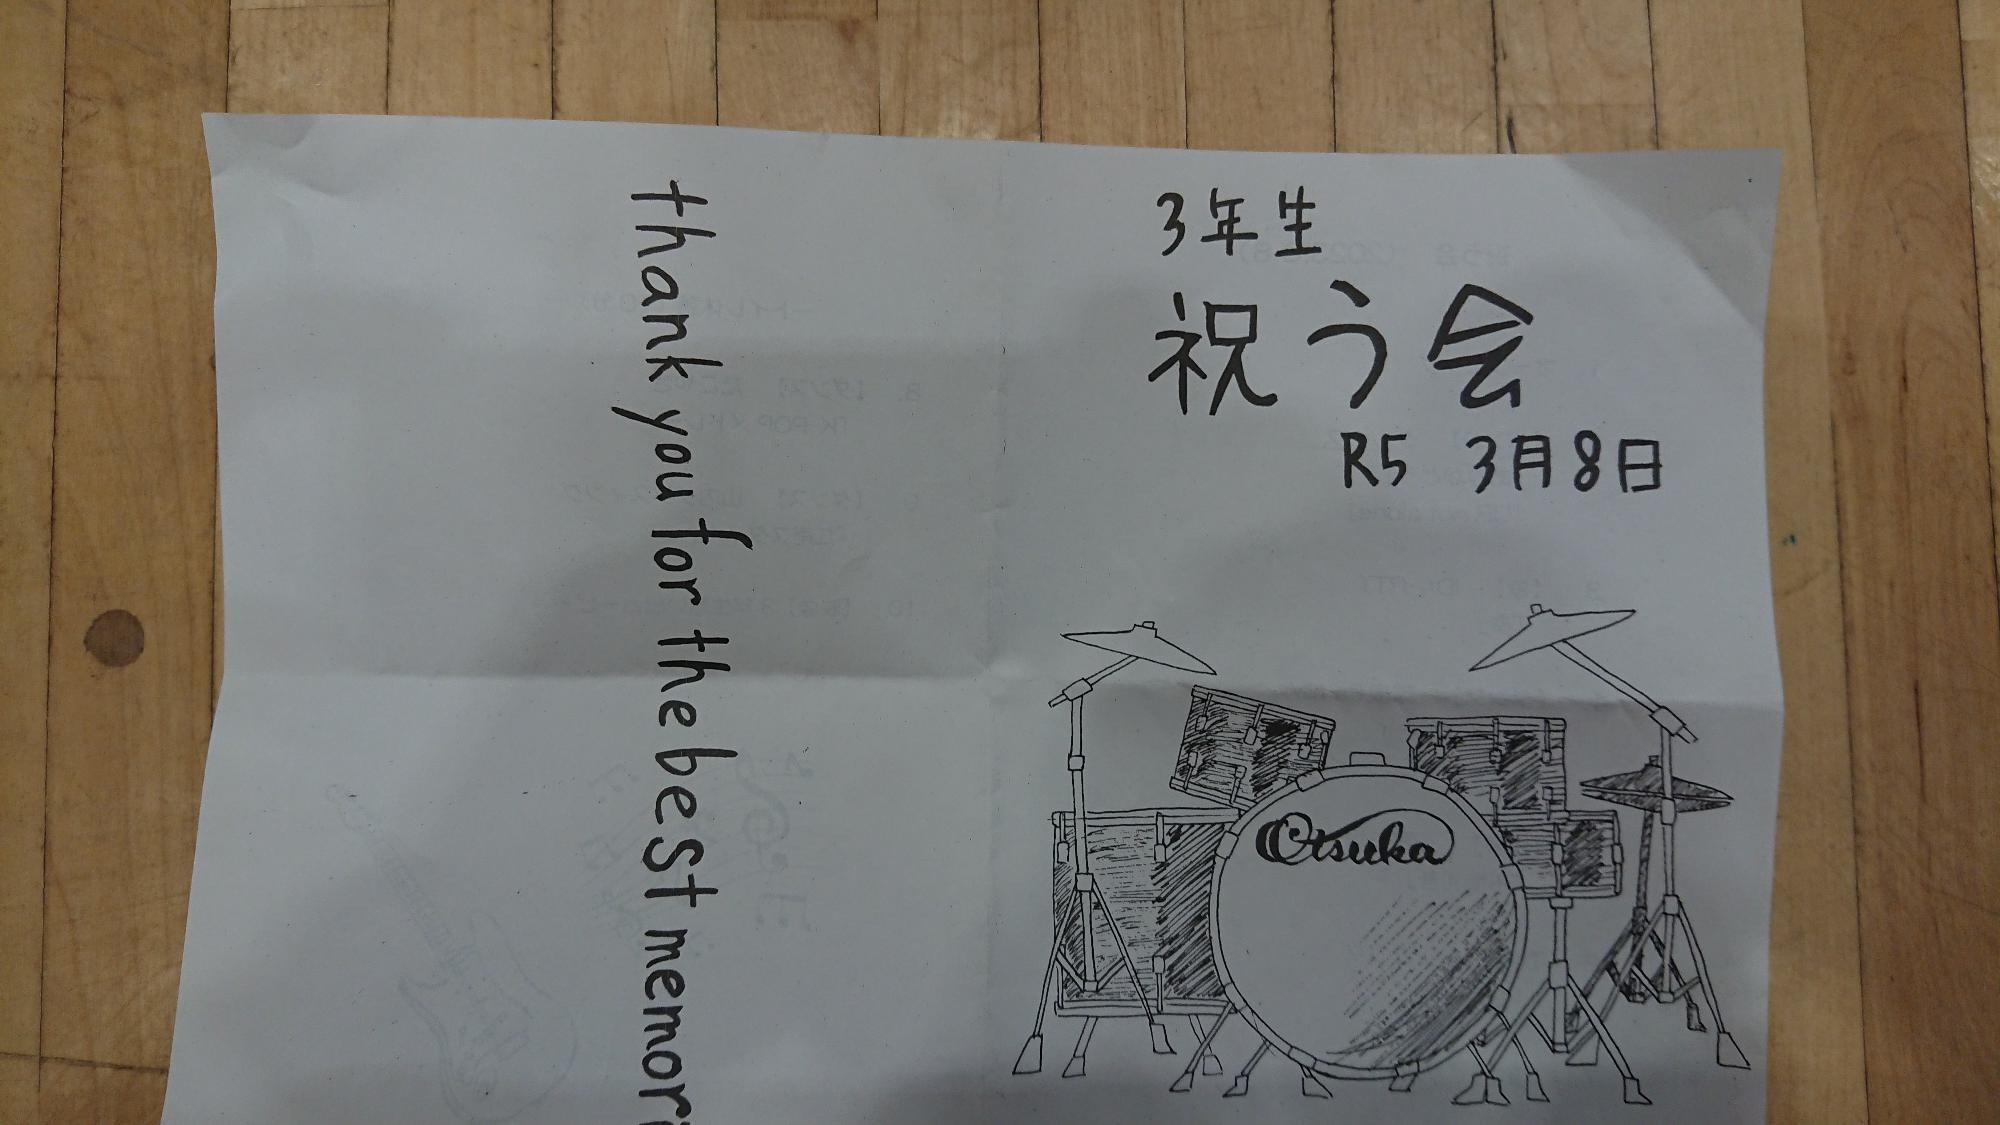 3年生
祝う会
R5 3月8日
Otsuka
thank you for the best memori